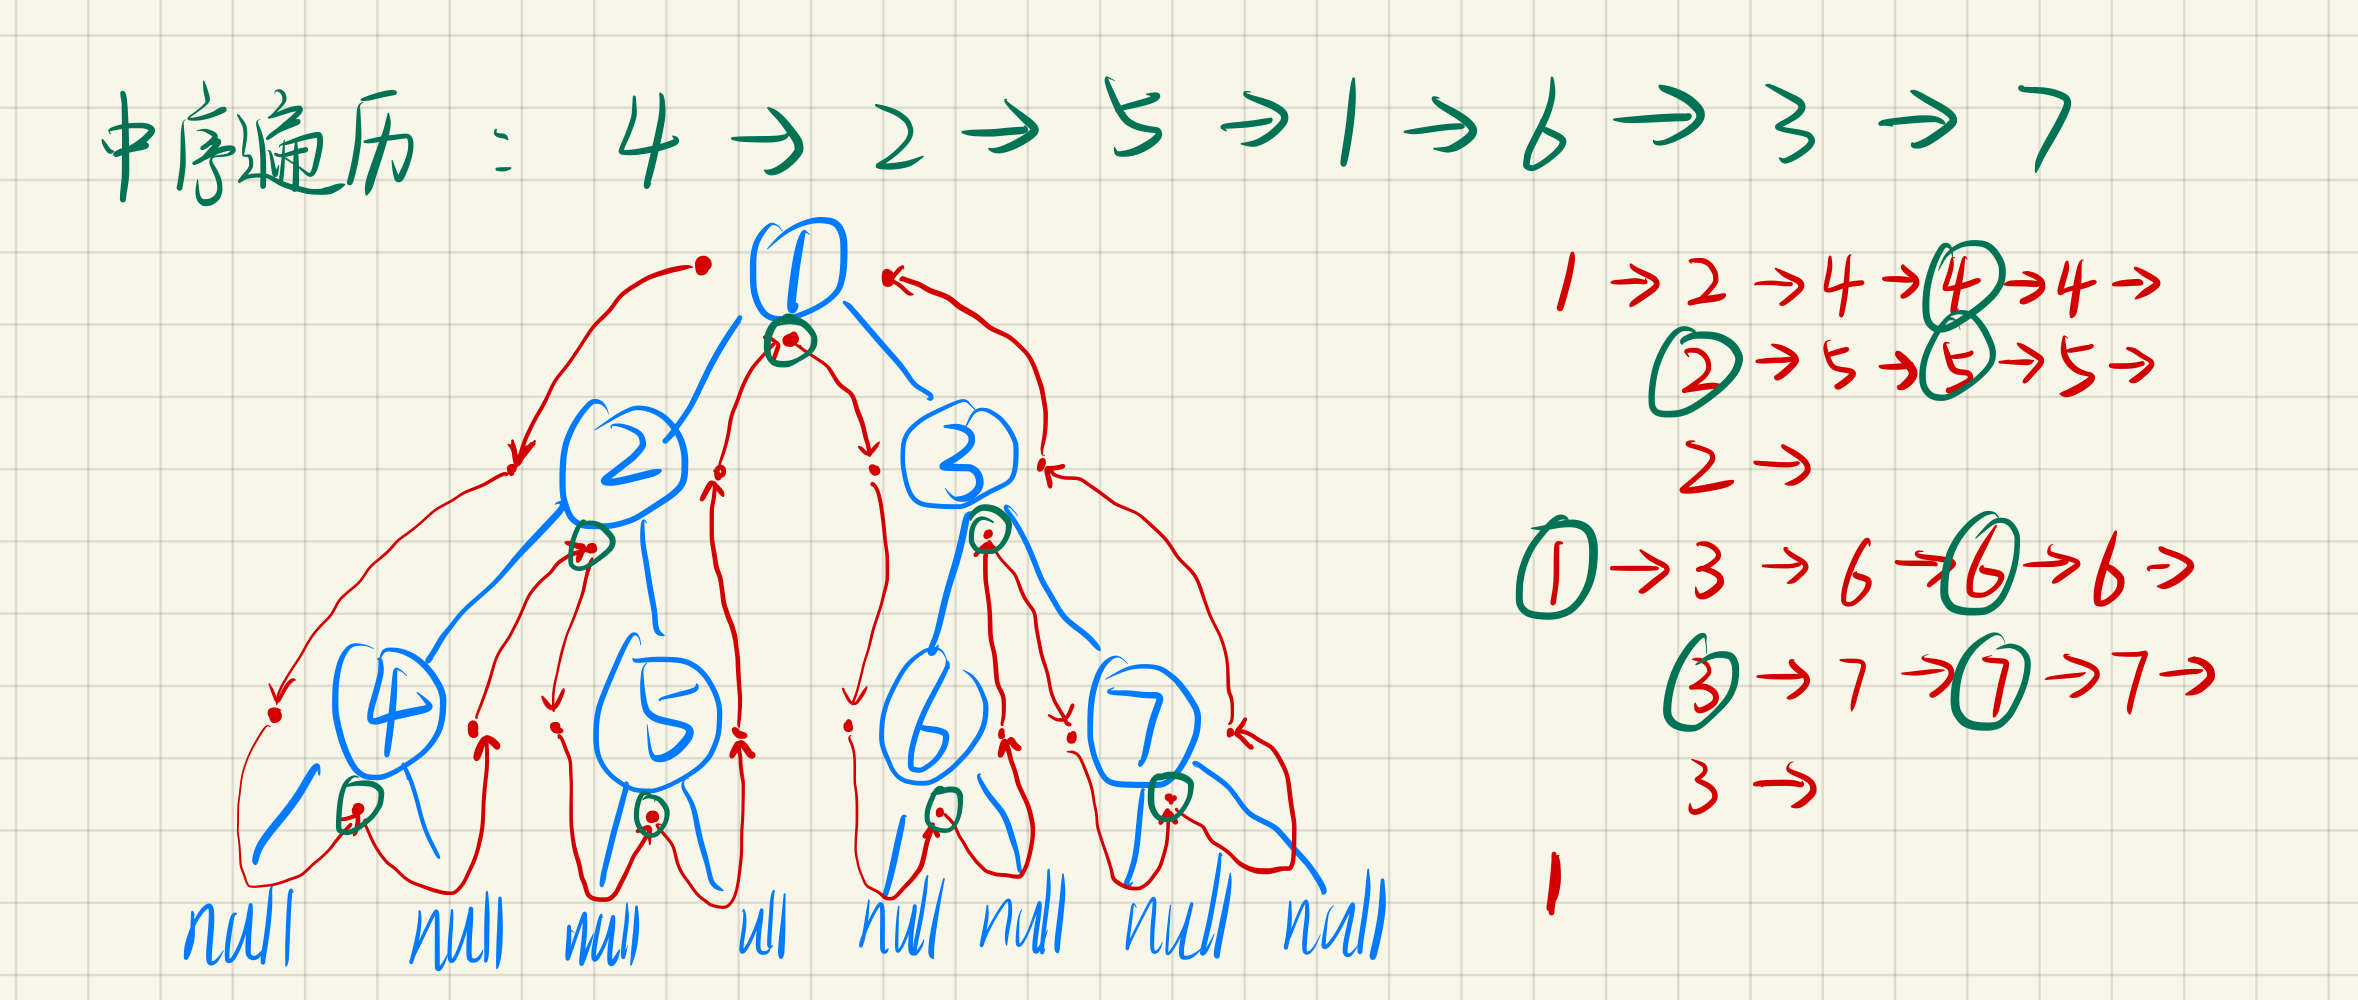 中序遍历: 4 → 2 → 5 → 1 → 6 → 3 → 7
1
2 3
4 5 6 7
null null null ull null null null null
1 → 2 → 4 → 4 → 4 →
2 → 5 → 5 → 5 →
2 →
1 → 3 → 6 → 6 → 6 →
3 → 7 → 7 → 7 →
3 →
1